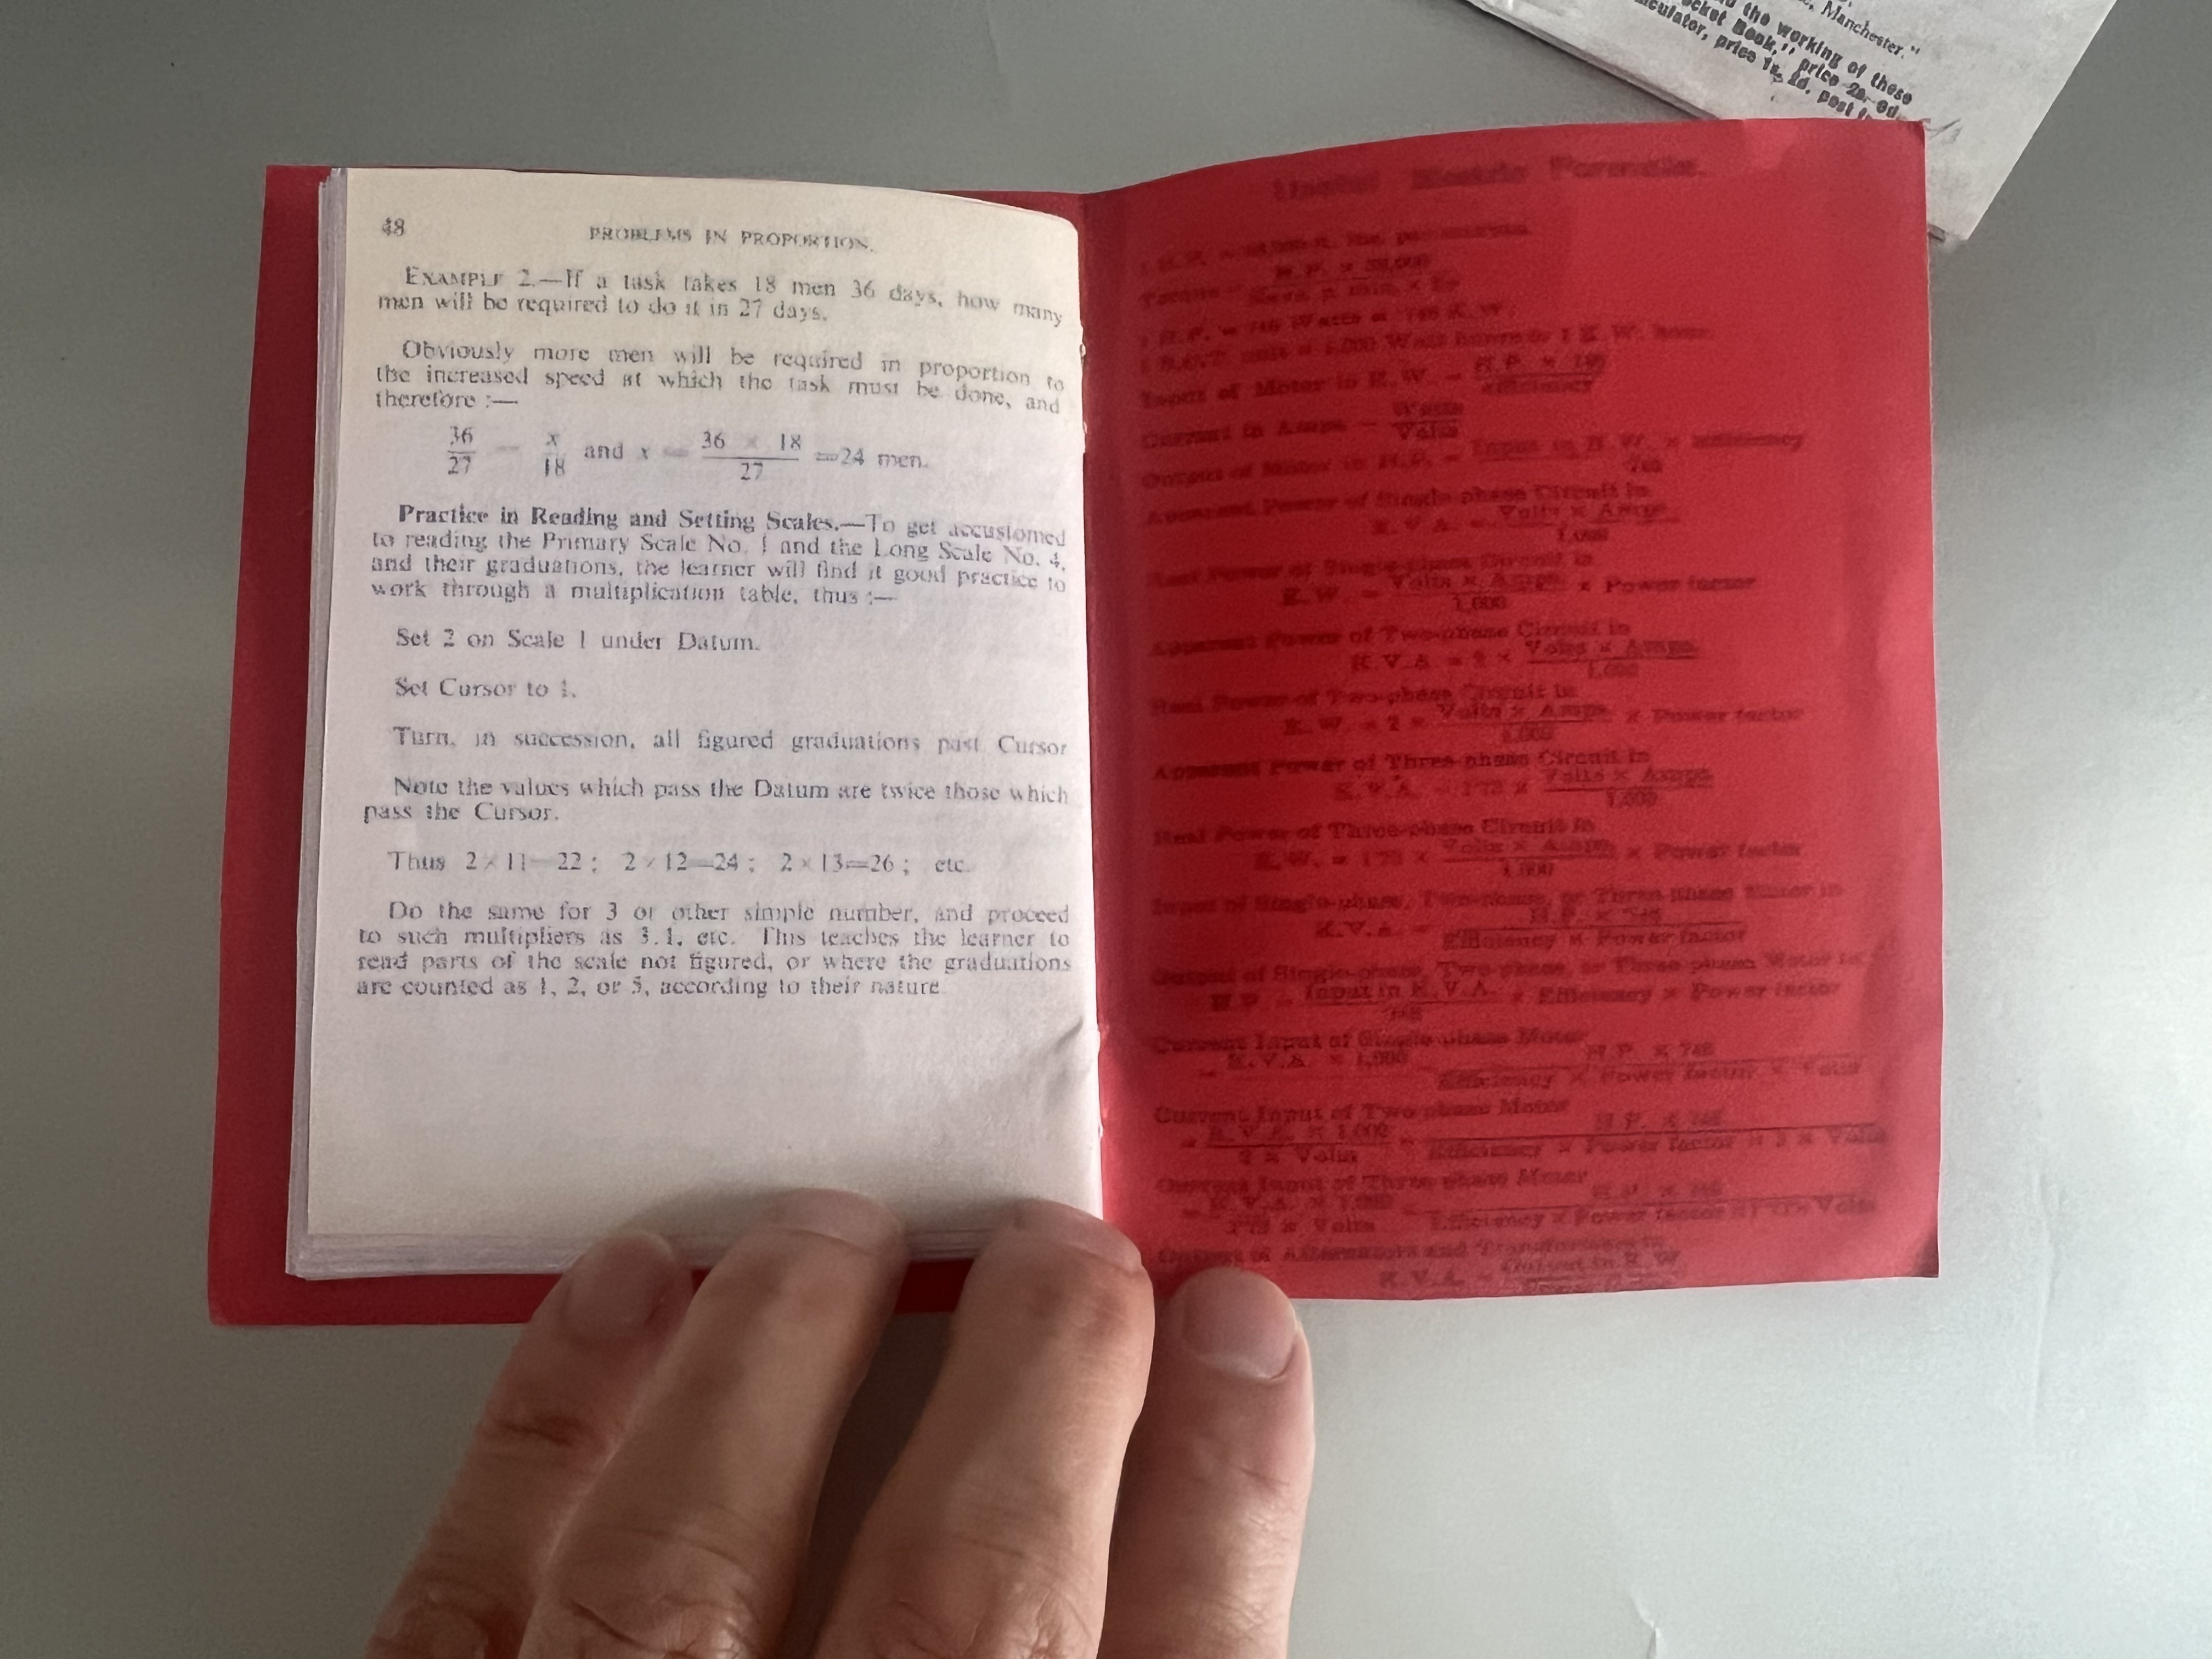 48
PROBLEMS IN PROPORTION.
EXAMPLE 2.—If a task takes 18 men 36 days, how many
men will be required to do it in 27 days.
Obviously more men will be required in proportion to
the increased speed at which the task must be done, and
therefore :—
36/27 = x/18 and x = 36 × 18/27 =24 men.
Practice in Reading and Setting Scales.—To get accustomed
to reading the Primary Scale No. 1 and the Long Scale No. 4,
and their graduations, the learner will find it good practice to
work through a multiplication table, thus :—
Set 2 on Scale 1 under Datum.
Set Cursor to 1.
Turn, in succession, all figured graduations past Cursor
Note the values which pass the Datum are twice those which
pass the Cursor.
Thus 2×11=22; 2×12=24; 2×13=26; etc.
Do the same for 3 or other simple number, and proceed
to such multipliers as 3.1, etc. This teaches the learner to
read parts of the scale not figured, or where the graduations
are counted as 1, 2, or 5, according to their nature
Useful Electric Formulæ.
Input of Motor in K.W. = H.P. × 746/Efficiency
Current in Amps = Watts/Volts
Output of Motor in H.P. = Input in K.W. × Efficiency
Apparent Power of Single-phase Circuit in
K.V.A. = Volts × Amps/1,000
Real Power of Single-phase Circuit in
K.W. = Volts × Amps/1,000 × Power factor
Apparent Power of Two-phase Circuit in
K.V.A. = 2 × Volts × Amps/1,000
Real Power of Two-phase Circuit in
K.W. = 2 × Volts × Amps/1,000 × Power factor
Apparent Power of Three-phase Circuit in
K.V.A. = 1·73 × Volts × Amps/1,000
Real Power of Three-phase Circuit in
K.W. = 1·73 × Volts × Amps/1,000 × Power factor
Input of Single-phase, Two-phase, or Three-phase Motor in
K.V.A. = H.P. × 746/Efficiency × Power factor
Output of Single-phase, Two-phase, or Three-phase Motor in
H.P. = Input in K.V.A./746 × Efficiency × Power factor
Current Input of Single-phase Motor
K.V.A. × 1,000 H.P. × 746/Efficiency × Power factor × Volts
Current Input of Two-phase Motor
= K.V.A. × 1,000/2 × Volts = H.P. × 746/Efficiency × Power factor × 2 × Volts
Current Input of Three-phase Motor
= K.V.A. × 1,000/1·73 × Volts = H.P. × 746/Efficiency × Power factor × Volts
Output of Alternators and Transformers in
K.V.A. = Output in K.W.
Manchester."
the working of these
price 2s. 6d.
price 1s. 2d. post